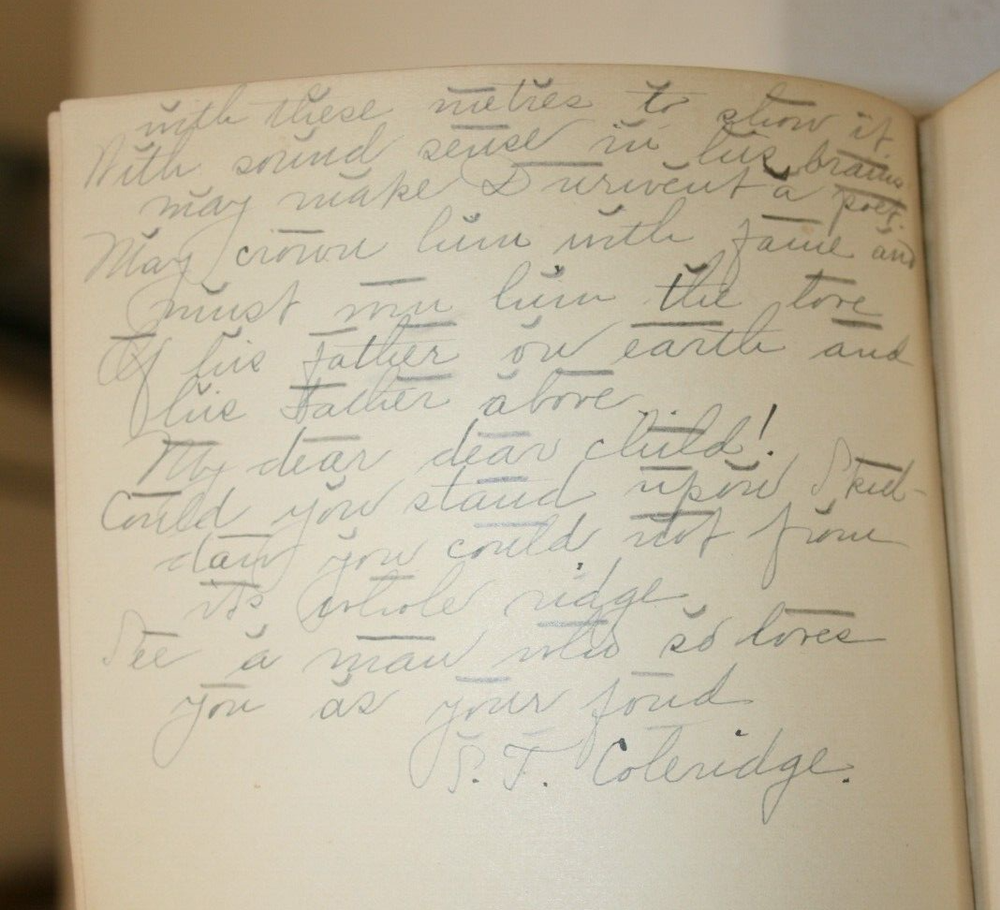 with these metres to show it
With sound sense in his brains
may make Durivent a poet.
May crown him with fame and
must win him the love
Of his father on earth and
his Father above.
My dear dear child!
Could you stand upon Skid-
daw you could not from
its whole ridge
See a man who so loves
you as your fond
S. T. Coleridge.